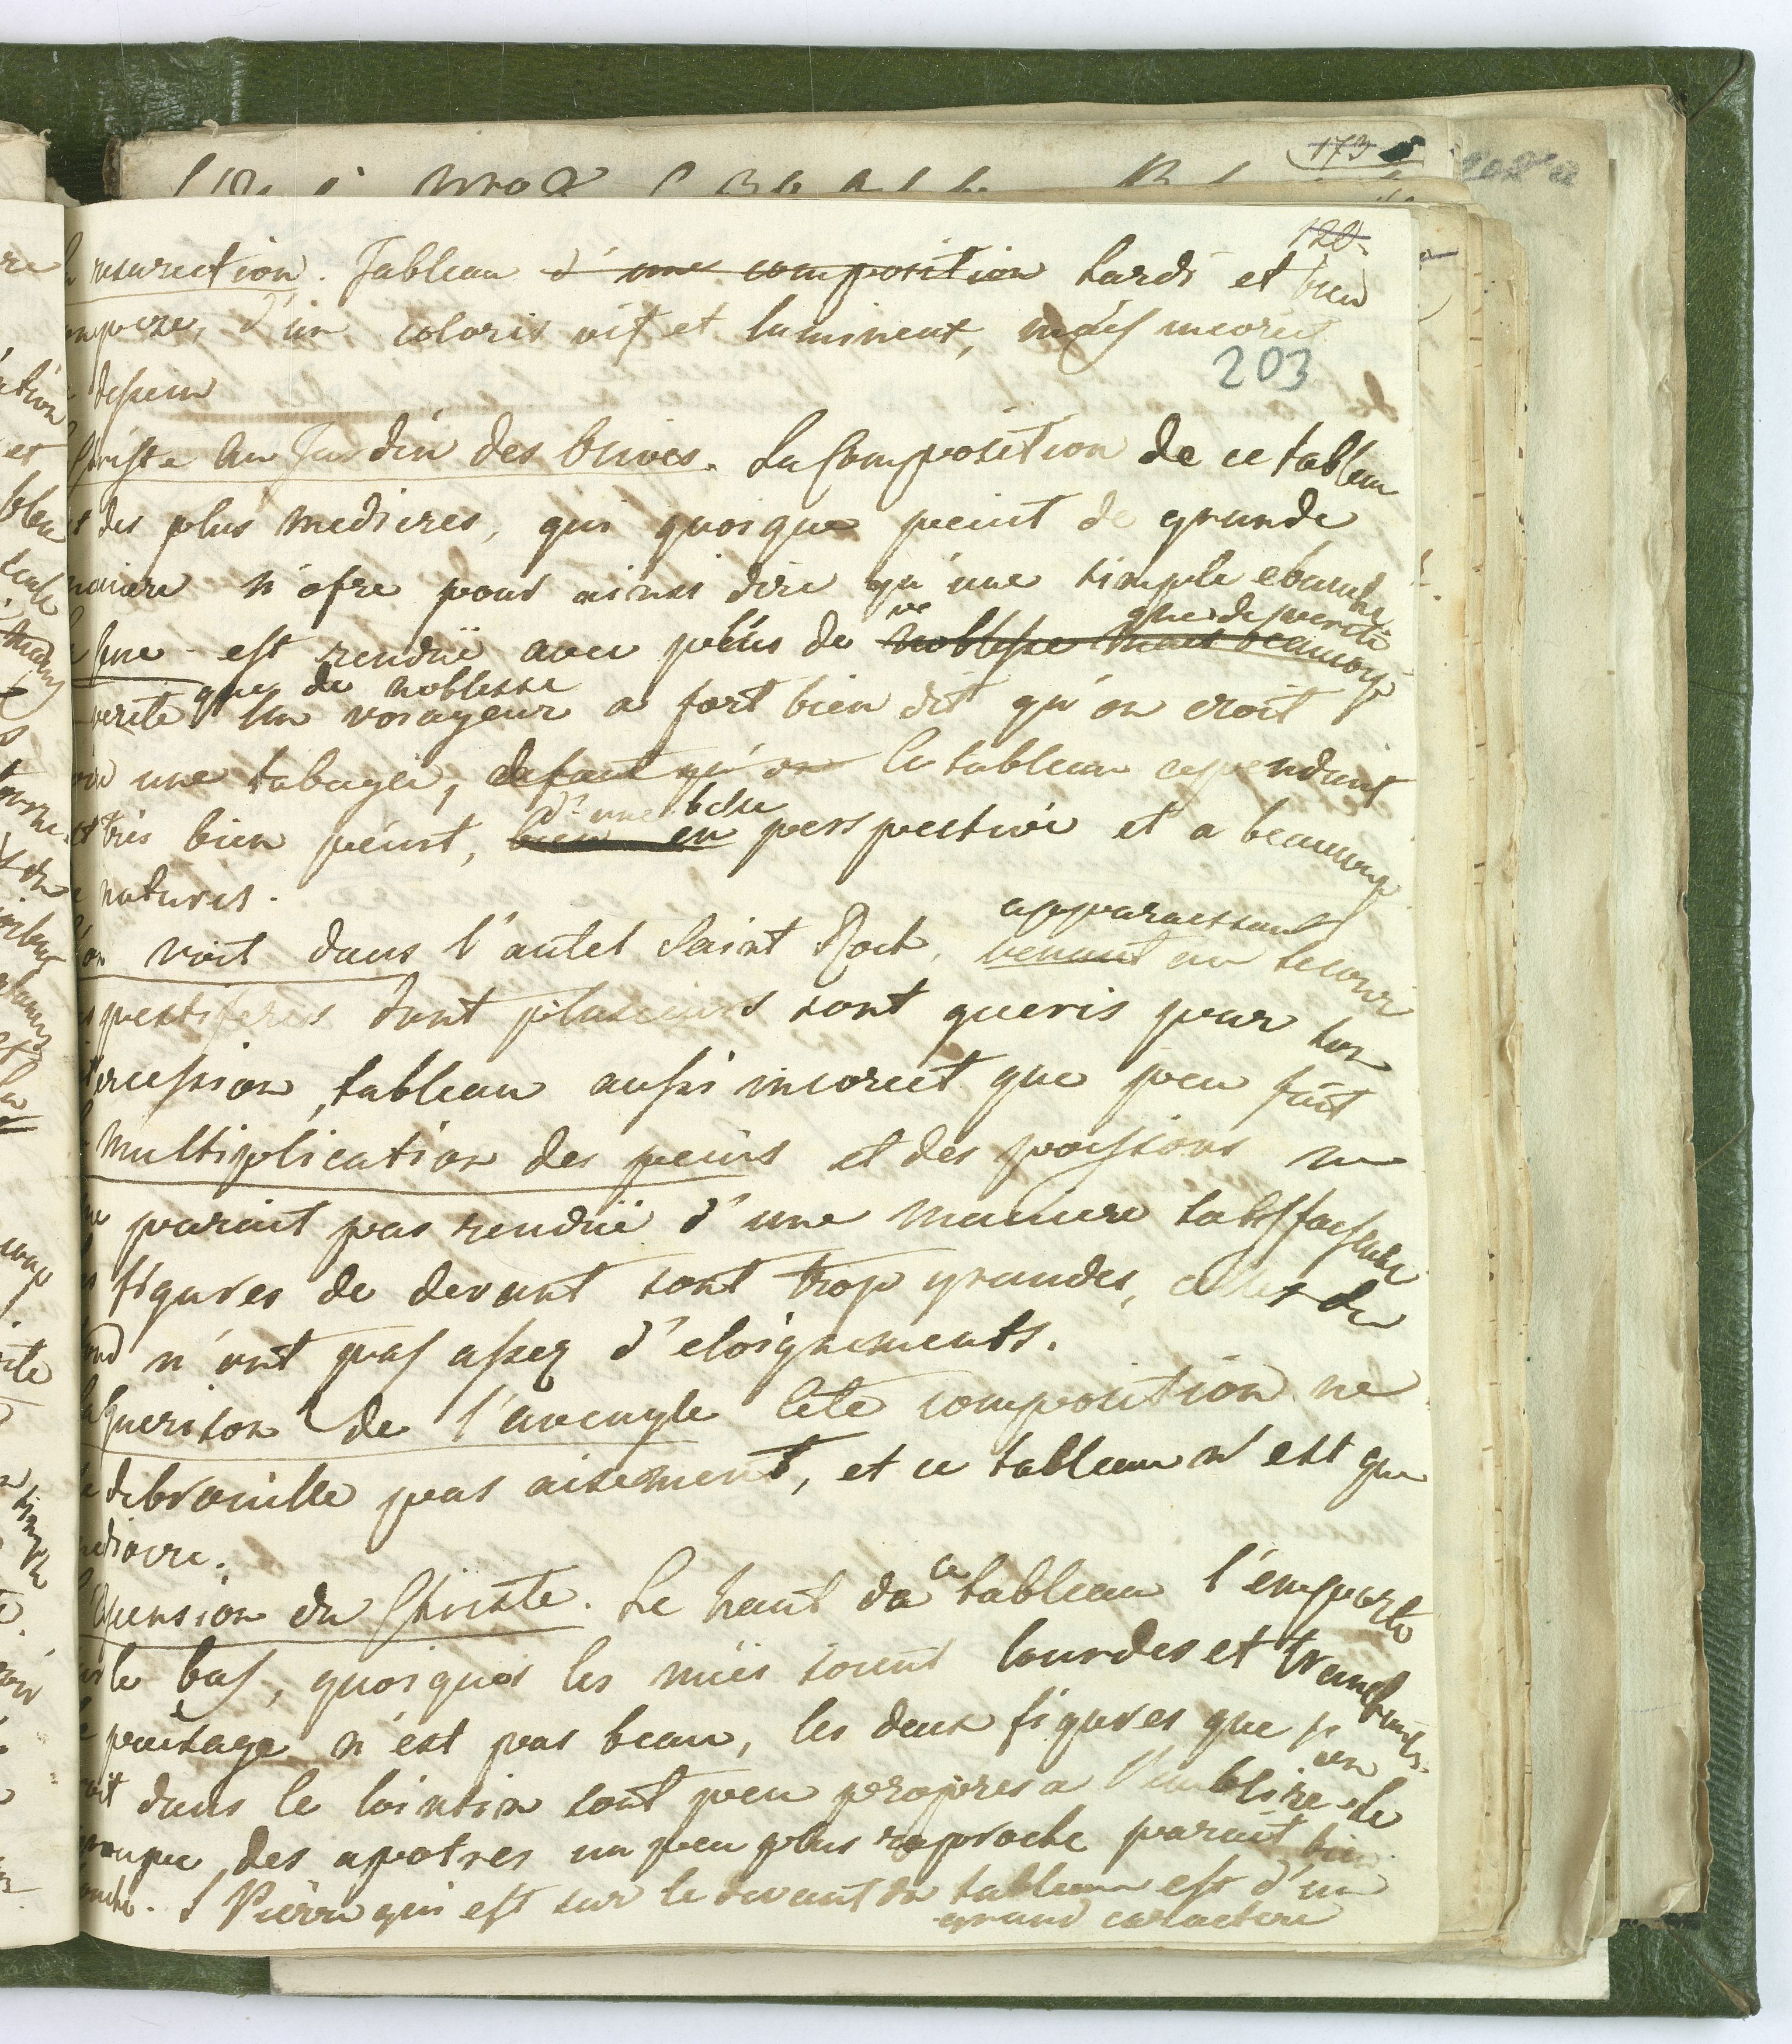 173
202
120
resurection. Tableau d'une composition hardi et bien
mpoze, d'un coloris vif et lumineux, mais incorect
dessein
203
Christe au Jardin des Olives. La Composition de ce tableau
des plus mediocres, qui quoique peint de grande
maniere n'ofre pour ainsi dire qu'une simple ebauche
que de verité
Cene est rendüe avec plus de noblesse mais beaucoup
que de noblesse
verité Un voiageur a fort bien dit qu'on croit
voir une tabagie, defaut qu'on Ce tableau cependant
d'une belle
est très bien peint, bien en perspective et a beaucoup
naturel.
apparaissant
on voit dans l'autel Saint Roch, venant au secour
pestiferes dont plusieurs sont gueris par son
intercession, tableau aussi incorect que peu fait
multiplication des peins et des poissons ne
me parait pas rendüe d'une maniere satisfaisante
figures de devant sont trop grandes, celles du
fond n'ont pas assez d'eloignements.
la guerison de l'aveugle Cete composition ne
debrouille pas aisement, et ce tableau n'est que
mediocre.
ce
l'Ascension du Christe. Le haut de tableau l'emporte
sur le bas, quoique les nües soient lourdes et tranchantes.
paisage n'est pas beau, les deux figures que l'on
voit dans le lointin sont peu propres a l'emblire. le
groupe des apotres un peu plus raproche parait bien
S Pierre qui est sur le devant du tableau est d'un
grand caractere